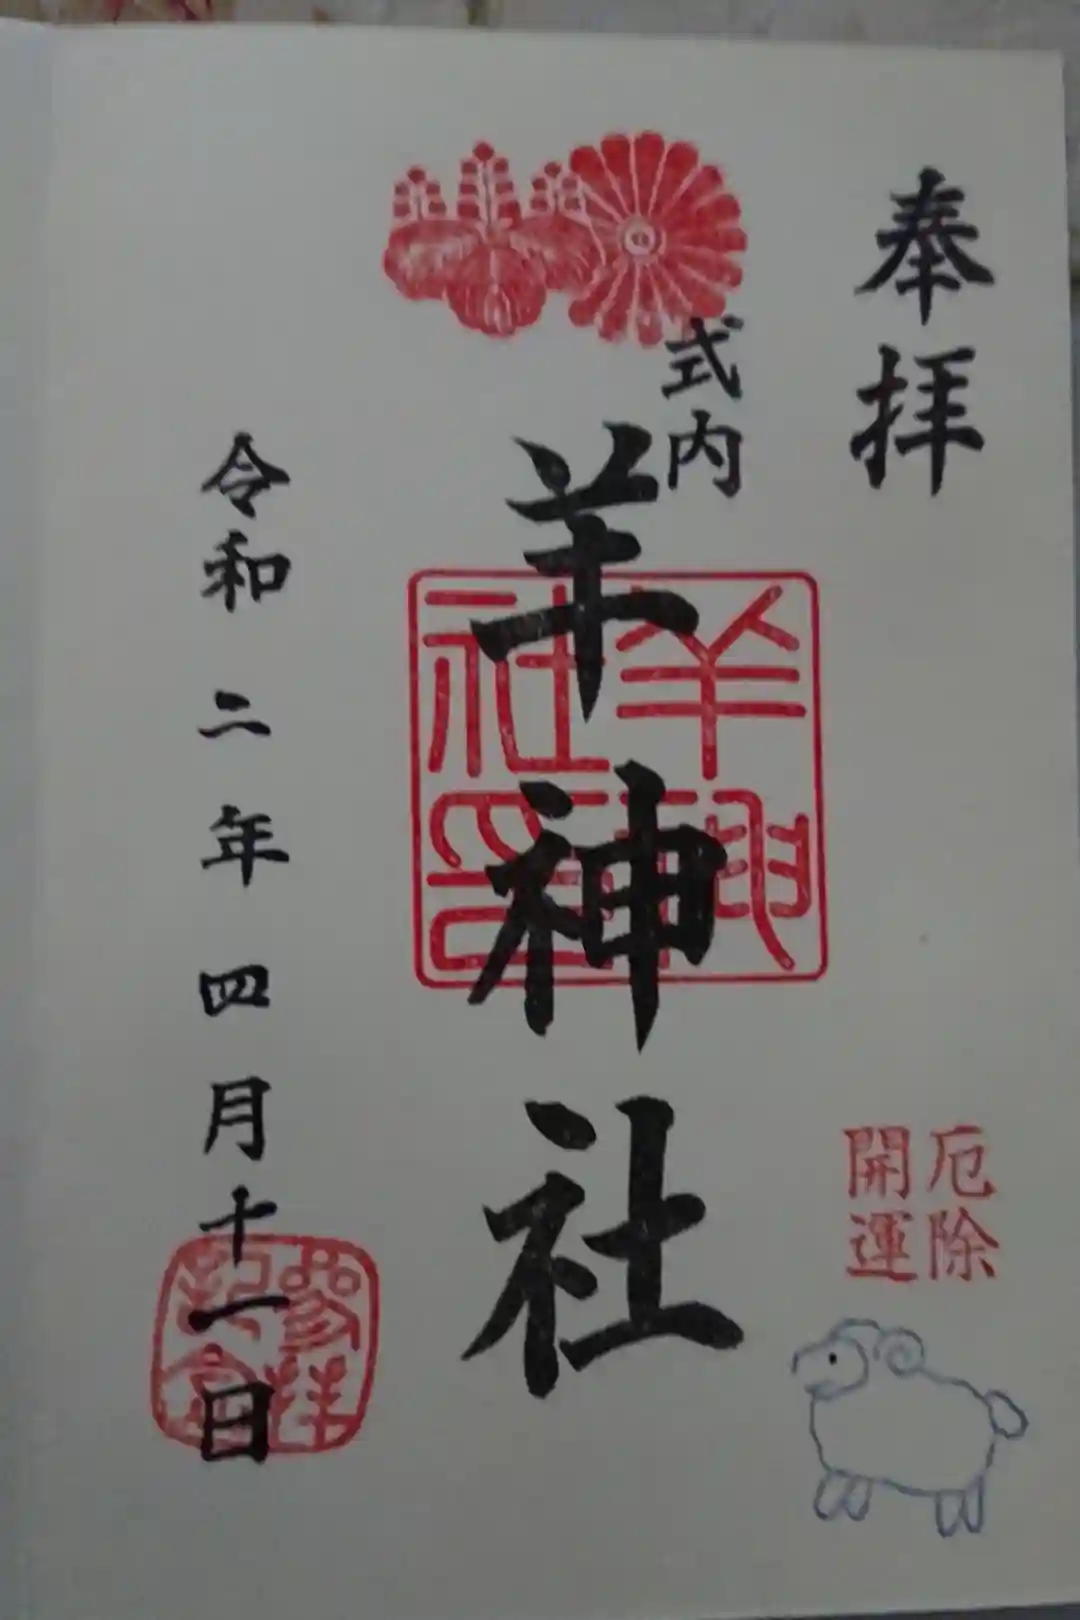 奉拝
式内
羊神社
羊神社印
厄除
開運
令和二年四月十一日
参拝記念